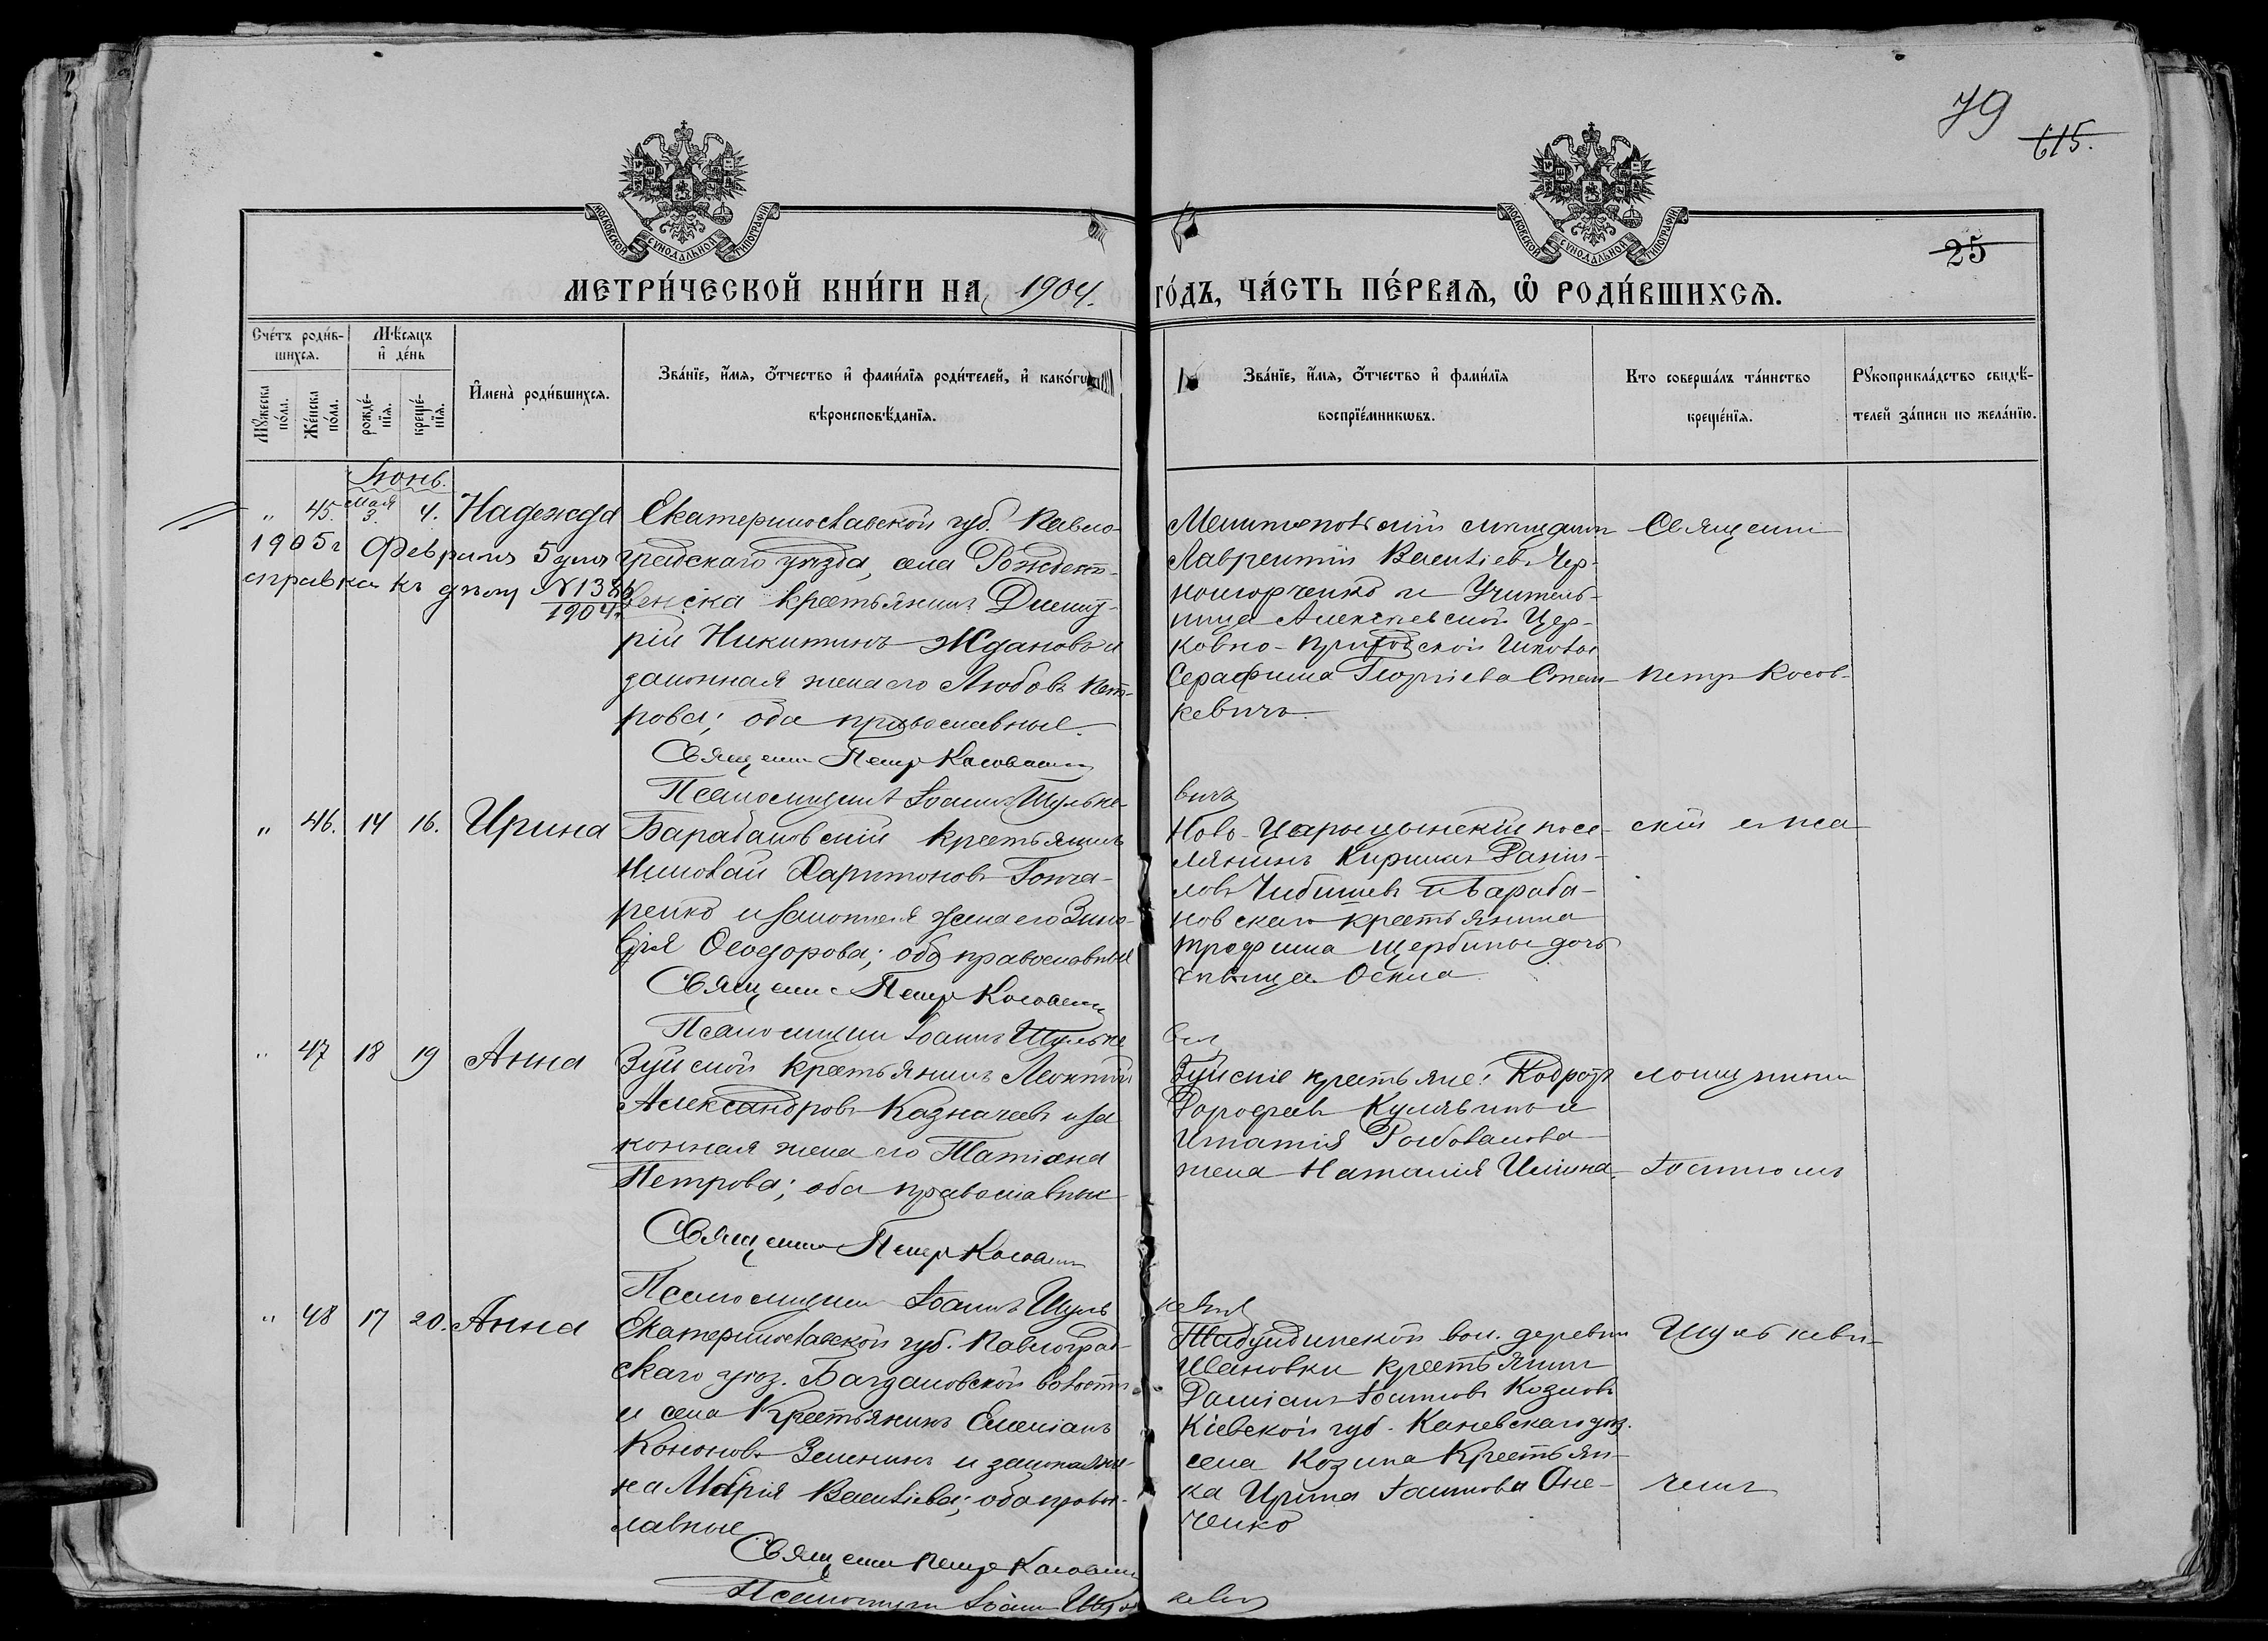 79
615.
МОСКОВСКОЙ СѴНОДАЛЬНОЙ ТИПОГРАФІИ
МОСКОВСКОЙ СѴНОДАЛЬНОЙ ТИПОГРАФІИ
25
МЕТРИ́ЧЕСКОЙ КНИ́ГИ НА 1904. ГО́ДЪ, ЧА́СТЬ ПЕ́РВАѦ, Ѡ҆ РОДИ́ВШИХСѦ.
Сче́тъ роди́в-
шихсѧ.
Мѣ́сѧцъ
и҆ де́нь
Мꙋ́жеска
по́ла.
Же́нска
по́ла.
рожде́-
нїѧ.
креще́-
нїѧ.
И҆мена̀ роди́вшихсѧ.
Зва́нїе, и҆́мѧ, ѻ҆́тчество и҆ фами́лїѧ роди́телей, и҆ како́гѡ
вѣроисповѣ́данїѧ.
Зва́нїе, и҆́мѧ, ѻ҆́тчество и҆ фами́лїѧ
воспрїе́мникѡвъ.
Кто соверша́лъ та́инство
креще́нїѧ.
Рꙋкоприкла́дство свидѣ́-
телей за́писи по жела́нїю.
Іюнь.
" 45. мая 3. 4. Надежда
1905 г Февраля 5 дня
справка къ делу №
1904
Екатеринославской губ. Павло-
градскаго уезда, села Рождест-
венска крестьянинъ Димит-
рій Никитинъ Ждановъ и
законная жена его Любовь Пет-
рова; оба православные.
Священ Петр Косовский
Псаломщикъ Іоаннъ Шульке-
вичъ
Мелитопольскій мещанин
Лаврентій Васильевъ Чер-
ногорченко и Учитель-
ница Алексеевской Цер-
ковно-приходской школы
Серафима Георгіева Стан-
кевичъ.
Священ
Петр Косов-
" 46. 14 16. Ирина
Барабановскій крестьянинъ
Николай Харитоновъ Гонча-
ренко и законная жена его Зино-
вія Ѳеодорова; оба православные
Священ Петр Косовский
Псаломщик Іоаннъ Шульке
вич
Ново-Царицынскій посе-
лянинъ Кириллъ Данил-
ловъ Чибишевъ и Бараба-
новскаго крестьянина
Трофима Щербины дочь
девица
скій и пса
" 47 18 19 Анна
Зуйской крестьянинъ Леонтий
Александровъ Казначеевъ и за
конная жена его Татіана
Петрова; оба православные
Священ Петр Косовский
Псаломщик Іоаннъ Шуль
кевич
Зуйскіе крестьяне: Кодратъ
Дорофеевъ Кулявинъ и
Игнатія
жена Наталія Ильина.
ломщиком
Іоанном
" 48 17 20. Анна
Екатеринославской губ. Павлоград-
скаго уез. Богдановской волости
и села Крестьянинъ Емеліанъ
Кононовъ Зеленинъ и законная же-
на Марія Васильева; оба правос-
лавные
Священ Петр Косовский
Псаломщик Іоанн Шуль
кевич
Табулдинской вол. деревни
Ивановки крестьянин
Даміанъ Іоанновъ Козловъ
Кіевской губ. Каневскаго уез.
села Козина Крестьян-
ка Ирина Іоаннова Оне-
ченко
Шулькеви-
чем